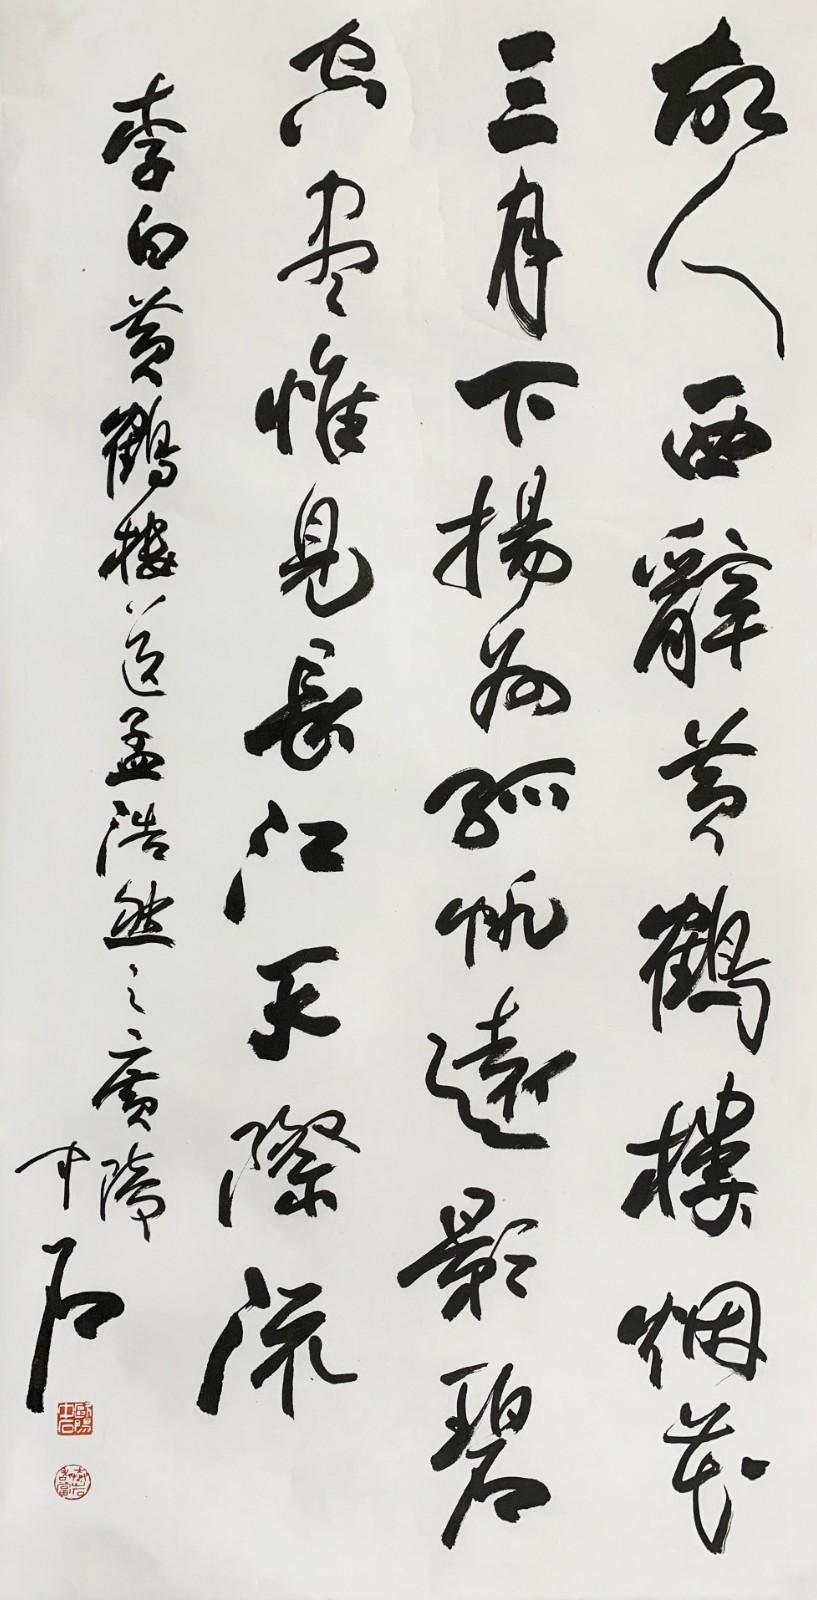 故人西辭黄鶴樓烟花
三月下揚州孤帆遠影碧
空盡惟見長江天際流
李白黄鶴樓送孟浩然之廣陵
中石
歐陽中石